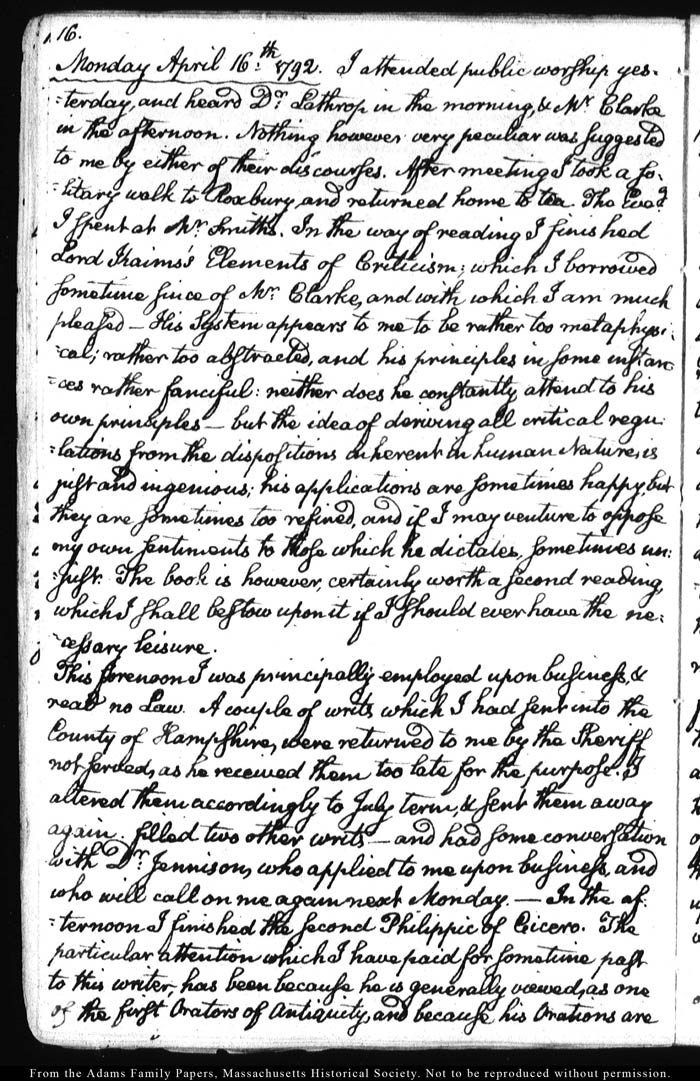 16.
Monday April 16:th 1792. I attended public worship yes-
-terday, and heard Dr. Lathrop in the morning, & Mr. Clarke
in the afternoon. Nothing however very peculiar was suggested
to me by either of their discourses. After meeting I took a so-
-litary walk to Roxbury, and returned home to tea. The Eveg.
I spent at Mr. Smith's. In the way of reading I finished
Lord Kaims's Elements of Criticism; which I borrowed
sometime since of Mr. Clarke, and with which I am much
pleased — His System appears to me to be rather too metaphysi-
-cal; rather too abstracted, and his principles in some instan-
-ces rather fanciful: neither does he constantly attend to his
own principles — but the idea of deriving all critical regu-
-lations from the dispositions inherent in human Nature, is
just and ingenious; his applications are sometimes happy, but
they are sometimes too refined, and if I may venture to oppose
my own sentiments to those which he dictates, sometimes un-
-just. The book is however, certainly worth a second reading,
which I shall bestow upon it if I should ever have the ne-
-cessary leisure.
This forenoon I was principally employed upon business, &
read no Law. A couple of writs which I had sent into the
County of Hampshire, were returned to me by the Sheriff
not served, as he received them too late for the purpose. I
altered them accordingly to July term, & sent them away
again. filled two other writs — and had some conversation
with Dr. Jennison, who applied to me upon business, and
who will call on me again next Monday. — In the af-
-ternoon I finished the second Philippic of Cicero. The
particular attention which I have paid for sometime past
to this writer, has been because he is generally viewed, as one
of the first Orators of Antiquity, and because his Orations are
From the Adams Family Papers, Massachusetts Historical Society. Not to be reproduced without permission.